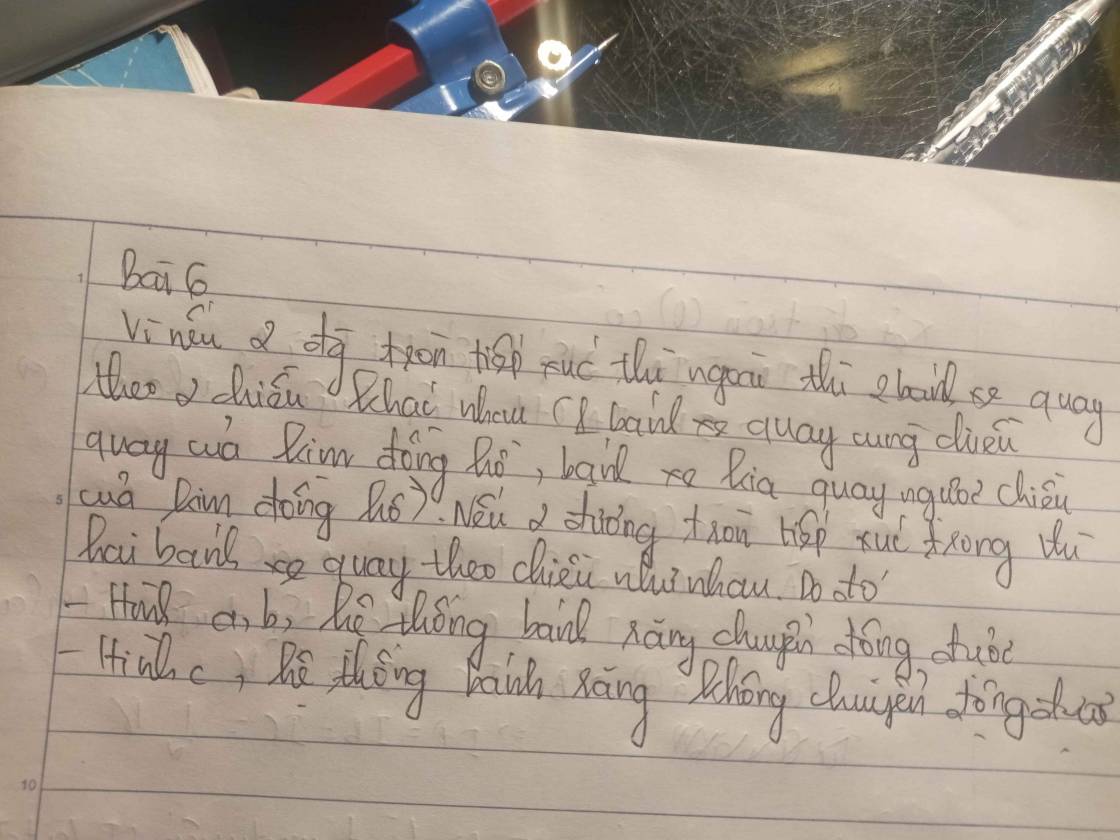 Bài 6
Vì nếu 2 đg tròn tiếp xúc thì ngoài thì 2 bánh xe quay
theo 2 chiều khác nhau (1 bánh xe quay cùng chiều
quay của kim đồng hồ, bánh xe kia quay ngược chiều
của kim đồng hồ). Nếu 2 đương tròn tiếp xúc trong thì
hai bánh xe quay theo chiều như nhau. Do đó
- Hình a, b, hệ thống bánh răng chuyển động được
- Hình c, hệ thống bánh răng không chuyển động được
1
5
10